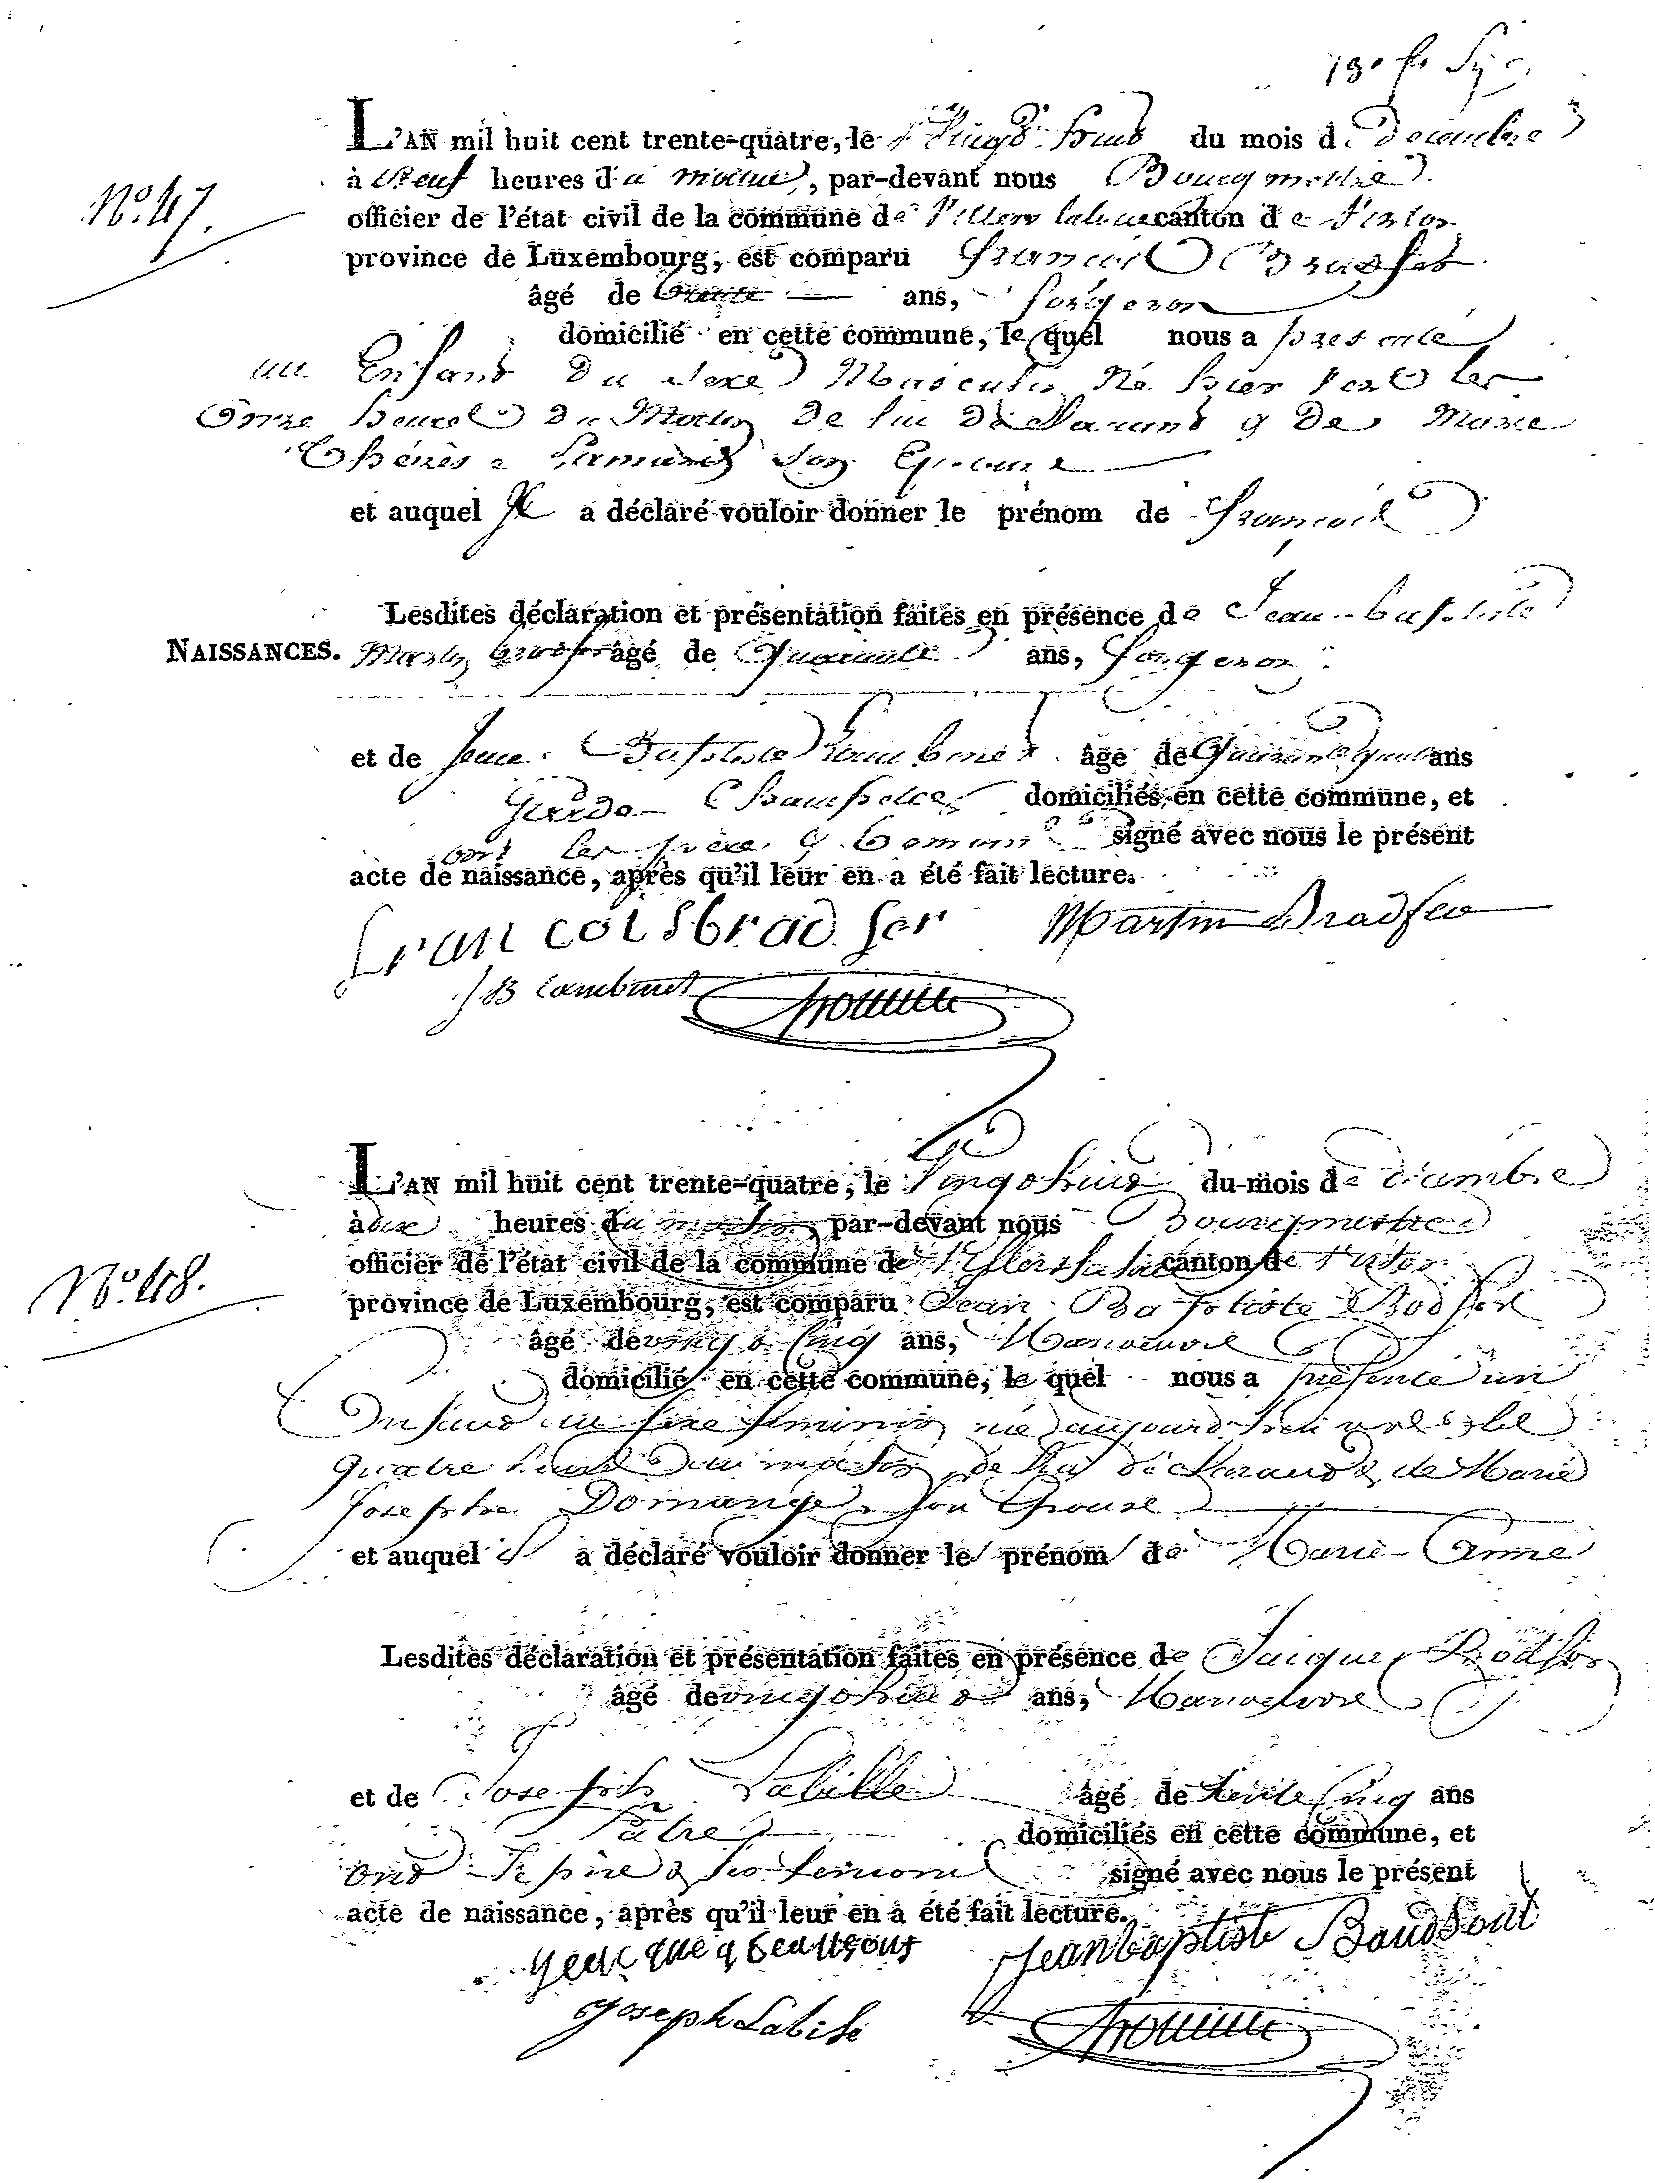 L'AN mil huit cent trente-quatre, le Vingt huit du mois de décembre
à Neuf heures du matin, par-devant nous Bourgmestre
N.º 47.
officier de l'état civil de la commune de Villers la loue canton de Virton
province de Luxembourg, est comparu François Bradfer
âgé de trente ans, forgeron
domicilié en cette commune, le quel nous a présenté
un Enfant du sexe Masculin Né hier vers les
Onze heures du Matin de lui déclarant & de Marie
Thérèse son Epouse
et auquel Il a déclaré vouloir donner le prénom de François
Lesdites déclaration et présentation faites en présence de Jean baptiste
NAISSANCES. Martin bradfer âgé de Quarante ans, forgeron
et de Jean Baptiste Lambinet âgé de Quarante quatre ans
Garde Champêtre domiciliés en cette commune, et
ont les père & témoins signé avec nous le présent
acte de naissance, après qu'il leur en a été fait lecture.
francois bradfer Martin Bradfer
JB Lambinet
L'AN mil huit cent trente-quatre, le Vingt huit du mois de décembre
à dix heures du matin, par-devant nous Bourgmestre
N.º 48.
officier de l'état civil de la commune de Villers la loue canton de Virton
province de Luxembourg, est comparu Jean Baptiste
âgé de vingt cinq ans, Manoeuvre
domicilié en cette commune, le quel nous a présenté un
Enfant du sexe féminin née aujourd'hui vers les
quatre heures du matin de lui déclarant & de Marie
Josephe Domange son Epouse
et auquel il a déclaré vouloir donner le prénom de Marie-Anne
Lesdites déclaration et présentation faites en présence de Jacques
âgé de vingt huit ans, Manoeuvre
et de Joseph Labille âgé de trente Cinq ans
Pâtre domiciliés en cette commune, et
ont le père & les témoins signé avec nous le présent
acte de naissance, après qu'il leur en a été fait lecture.
Jean baptiste Baudsont
Joseph Labile